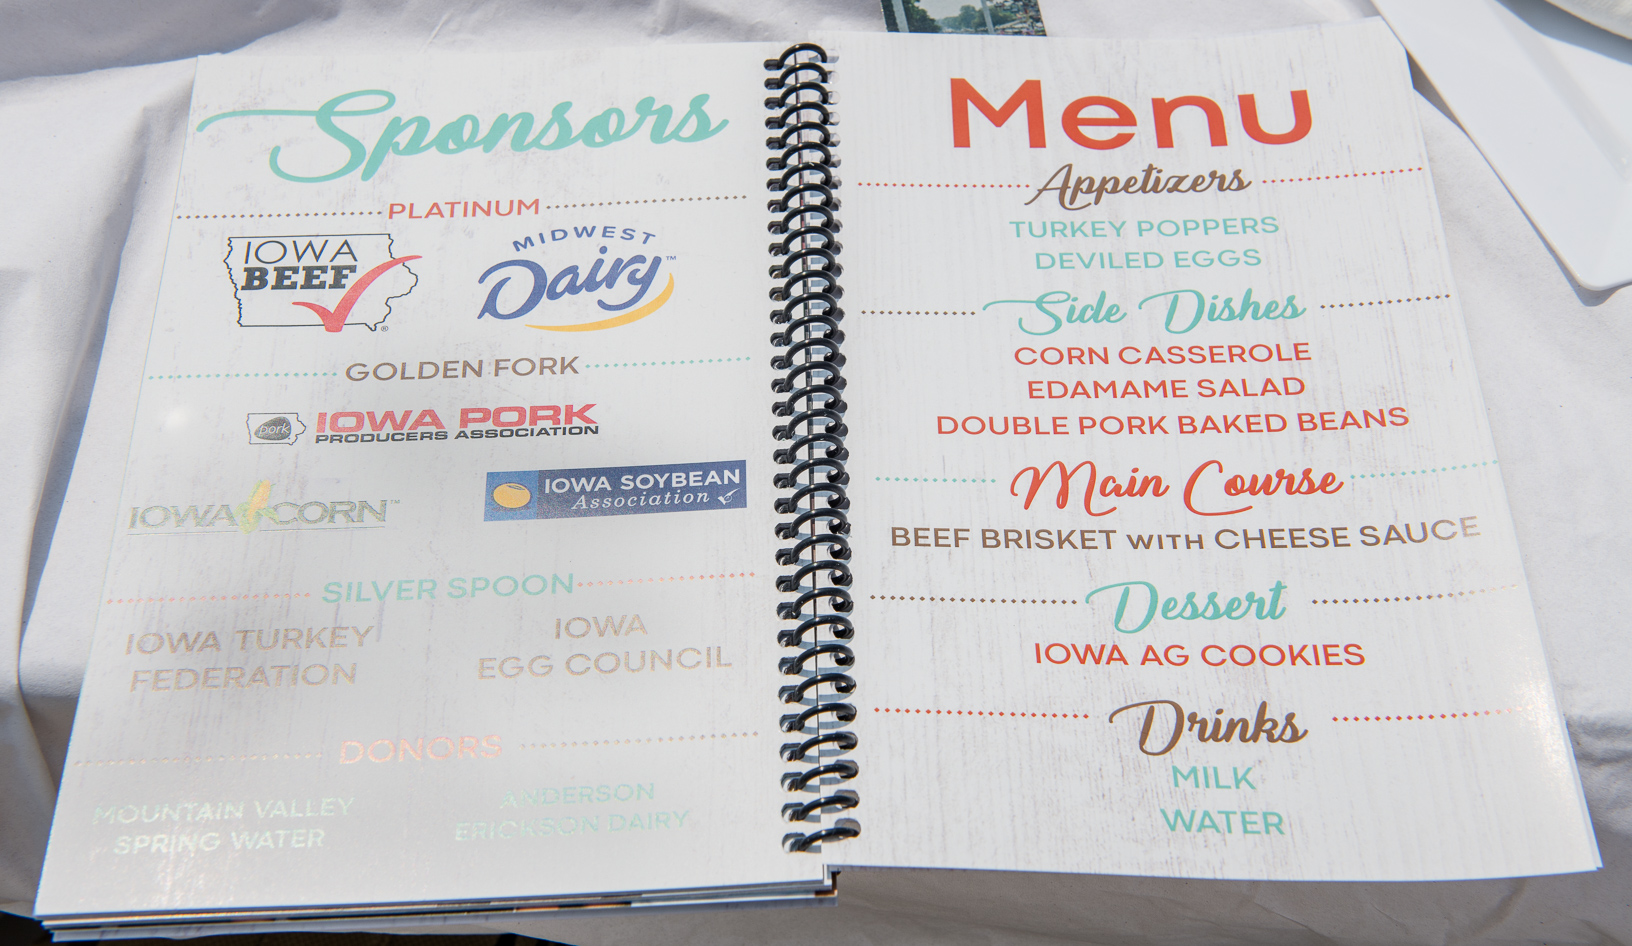 Sponsors
PLATINUM
IOWA
BEEF
®
MIDWEST
Dairy™
GOLDEN FORK
pork
IOWA PORK
PRODUCERS ASSOCIATION
IOWA CORN™
IOWA SOYBEAN
Association
SILVER SPOON
IOWA TURKEY
FEDERATION
IOWA
EGG COUNCIL
DONORS
MOUNTAIN VALLEY
SPRING WATER
ANDERSON
ERICKSON DAIRY
Menu
Appetizers
TURKEY POPPERS
DEVILED EGGS
Side Dishes
CORN CASSEROLE
EDAMAME SALAD
DOUBLE PORK BAKED BEANS
Main Course
BEEF BRISKET WITH CHEESE SAUCE
Dessert
IOWA AG COOKIES
Drinks
MILK
WATER